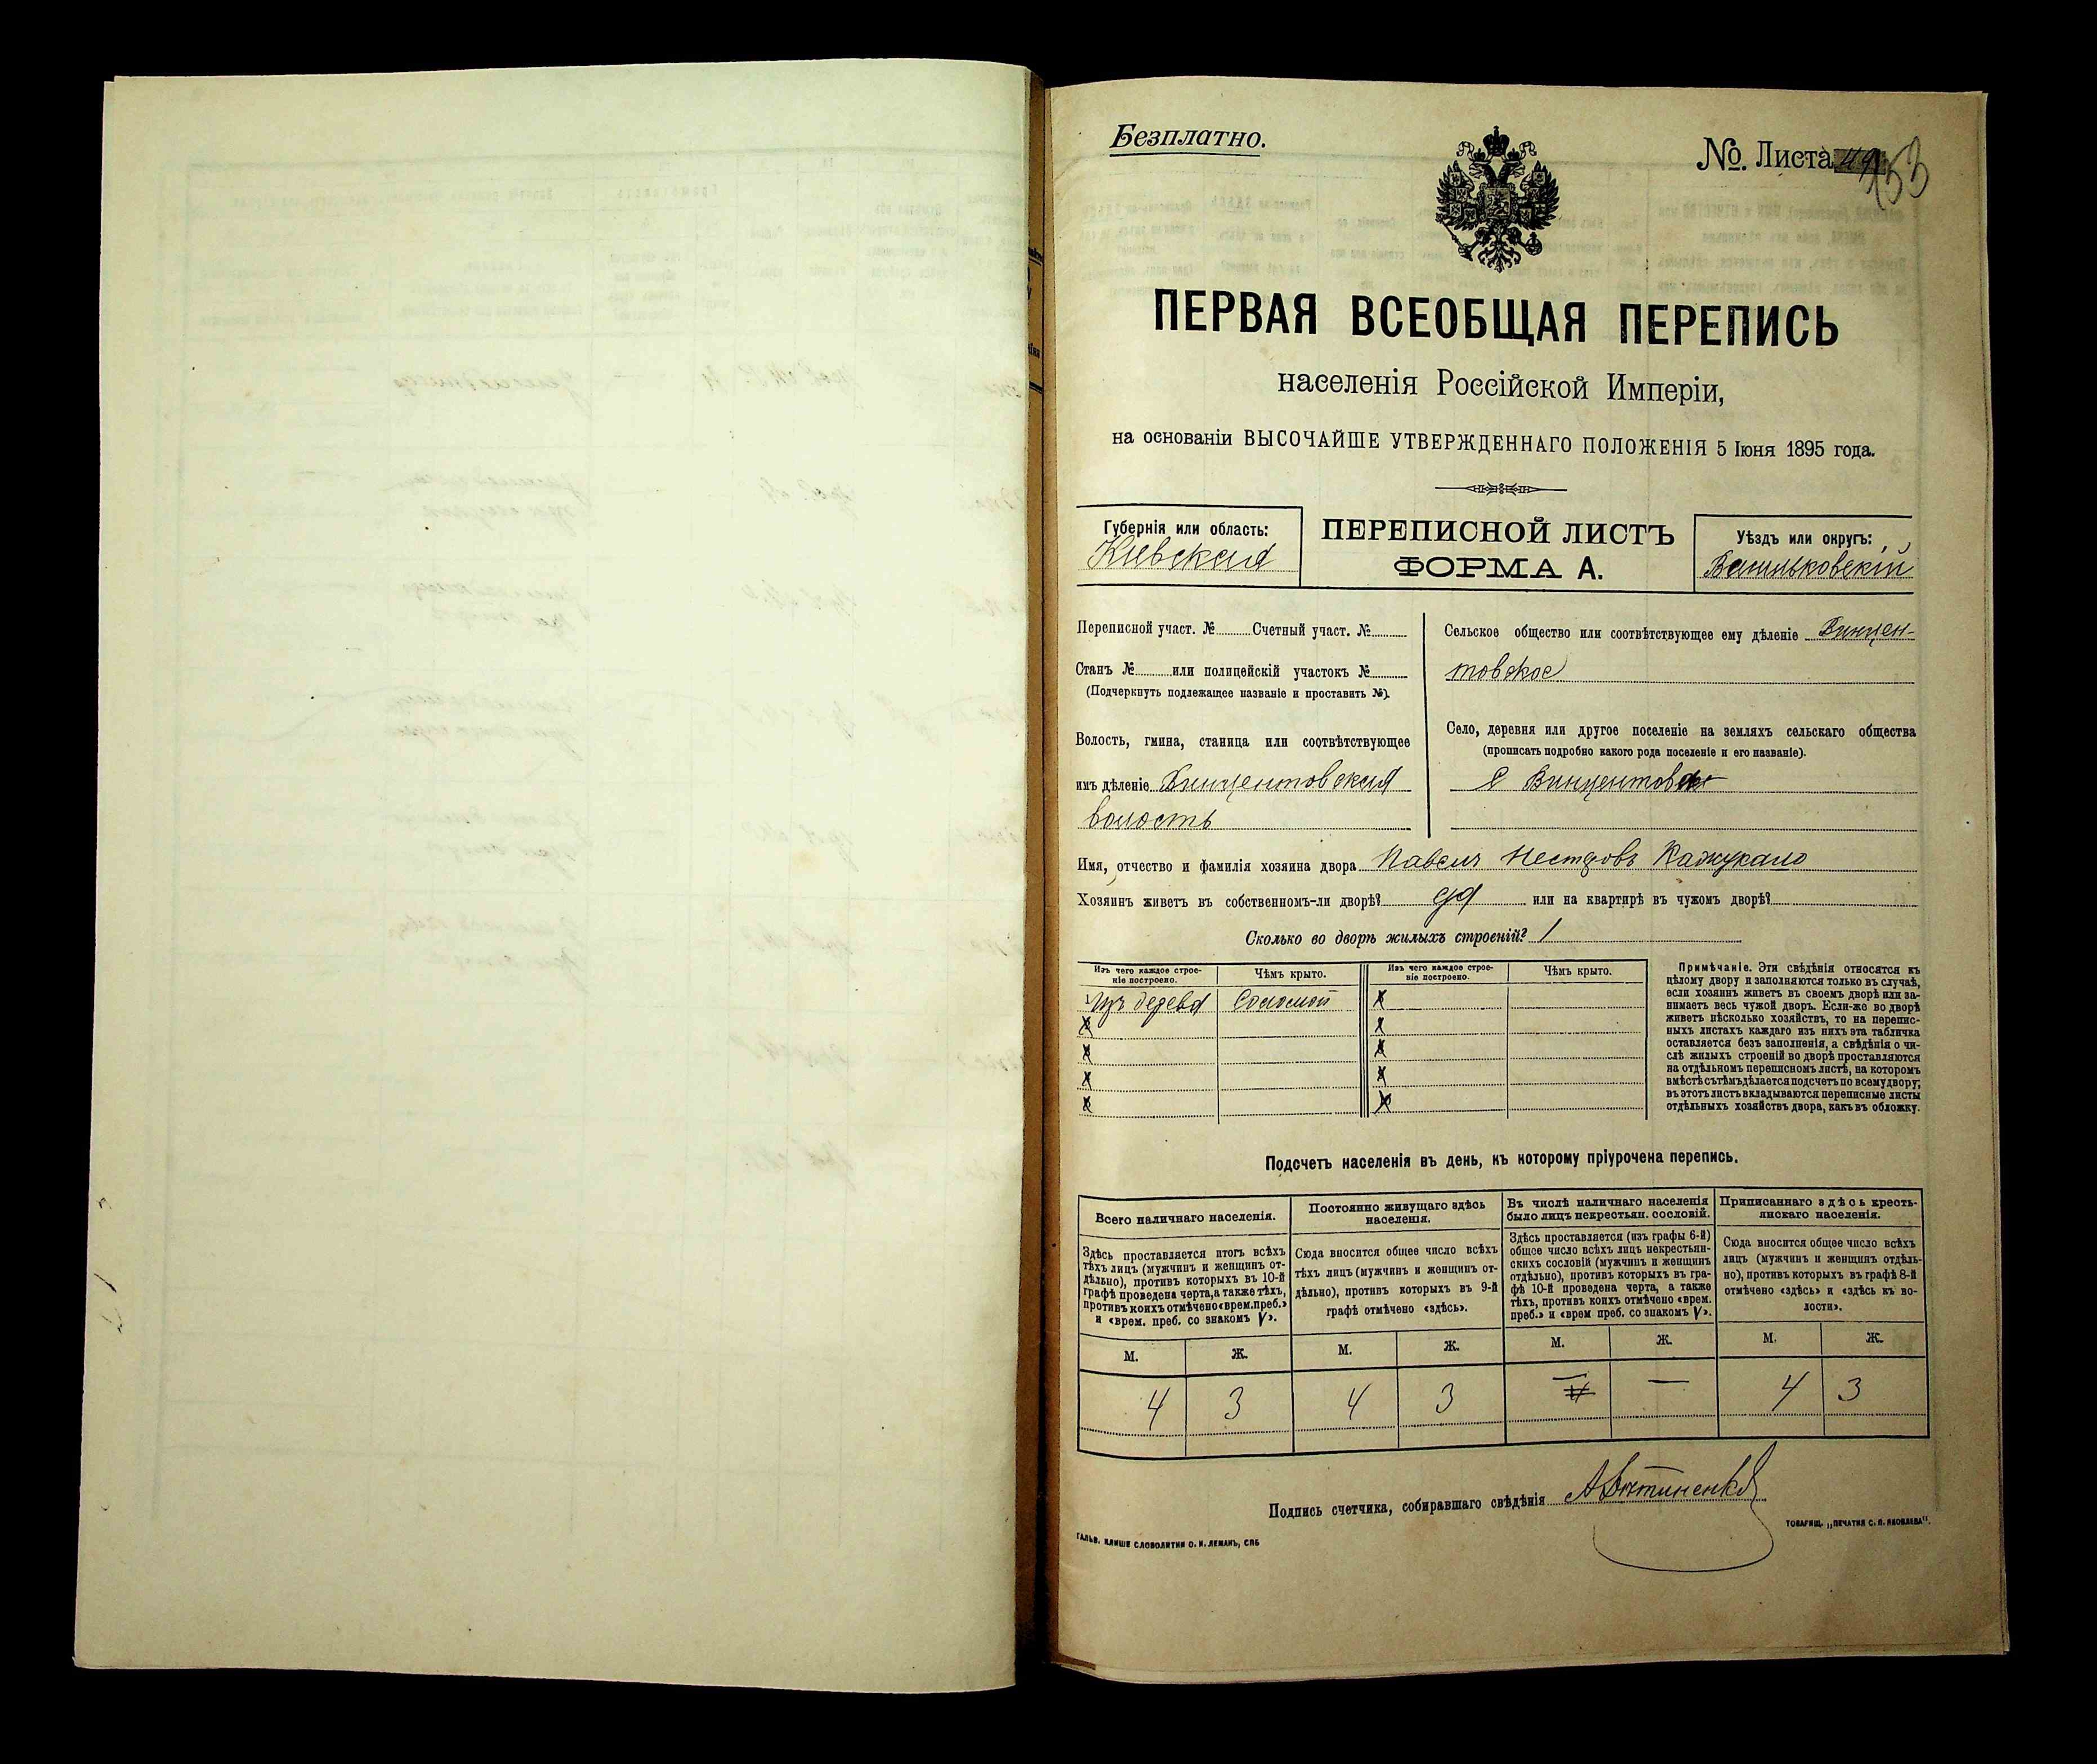 Безплатно.
№. Листа 153
ПЕРВАЯ ВСЕОБЩАЯ ПЕРЕПИСЬ
населенія Россійской Имперіи,
на основаніи ВЫСОЧАЙШЕ УТВЕРЖДЕННАГО ПОЛОЖЕНІЯ 5 Іюня 1895 года.
Губернія или область:
Кіевская
ПЕРЕПИСНОЙ ЛИСТЪ
ФОРМА А.
Уѣздъ или округъ:
Васильковскій
Переписной участ. № Счетный участ. №
Станъ № или полицейскій участокъ №
(Подчеркнуть подлежащее названіе и проставить №).
Волость, гмина, станица или соотвѣтствующее
имъ дѣленіе Винцентовская
волость
Сельское общество или соотвѣтствующее ему дѣленіе Винцен-
товское
Село, деревня или другое поселеніе на земляхъ сельскаго общества
(прописать подробно какого рода поселеніе и его названіе).
с Винцентовка
Имя, отчество и фамилія хозяина двора Павелъ Нестровъ Кажукало
Хозяинъ живетъ въ собственномъ-ли дворѣ? да или на квартирѣ въ чужомъ дворѣ?
Сколько во дворѣ жилыхъ строеній? 1
Изъ чего каждое строе-
ніе построено.
Чѣмъ крыто.
Изъ чего каждое строе-
ніе построено.
Чѣмъ крыто.
1 Изъ дерева Соломой
Примѣчаніе. Эти свѣдѣнія относятся къ
цѣлому двору и заполняются только въ случаѣ,
если хозяинъ живетъ въ своемъ дворѣ или за-
нимаетъ весь чужой дворъ. Если-же во дворѣ
живетъ нѣсколько хозяйствъ, то на перепис-
ныхъ листахъ каждаго изъ нихъ эта табличка
оставляется безъ заполненія, а свѣдѣнія о чи-
слѣ жилыхъ строеній во дворѣ проставляются
на отдѣльномъ переписномъ листѣ, на которомъ
вмѣстѣ съ тѣмъ дѣлается подсчетъ по всему двору;
въ этотъ листъ вкладываются переписные листы
отдѣльныхъ хозяйствъ двора, какъ въ обложку.
Подсчетъ населенія въ день, къ которому пріурочена перепись.
Всего наличнаго населенія.
Здѣсь проставляется итогъ всѣхъ
тѣхъ лицъ (мужчинъ и женщинъ от-
дѣльно), противъ которыхъ въ 10-й
графѣ проведена черта, а также тѣхъ,
противъ коихъ отмѣчено «врем. преб.»
и «врем. преб. со знакомъ V».
Постоянно живущаго здѣсь
населенія.
Сюда вносится общее число всѣхъ
тѣхъ лицъ (мужчинъ и женщинъ от-
дѣльно), противъ которыхъ въ 9-й
графѣ отмѣчено «здѣсь».
Въ числѣ наличнаго населенія
было лицъ некрестьян. сословій.
Здѣсь проставляется (изъ графы 6-й)
общее число всѣхъ лицъ некрестьян-
скихъ сословій (мужчинъ и женщинъ
отдѣльно), противъ которыхъ въ гра-
фѣ 10-й проведена черта, а также
тѣхъ, противъ коихъ отмѣчено «врем.
преб.» и «врем преб. со знакомъ V».
Приписаннаго здѣсь кресть-
янскаго населенія.
Сюда вносится общее число всѣхъ
лицъ (мужчинъ и женщинъ отдѣль-
но), противъ которыхъ въ графѣ 8-й
отмѣчено «здѣсь» и «здѣсь къ во-
лости».
М. Ж. М. Ж. М. Ж. М. Ж.
4 3 4 3 — — 4 3
Подпись счетчика, собиравшаго свѣдѣнія
ГАЛЬВ. КЛИШЕ СЛОВОЛИТНИ О. И. ЛЕМАНЪ, СПБ
ТОВАРИЩ. „ПЕЧАТНЯ С. П. ЯКОВЛЕВА".